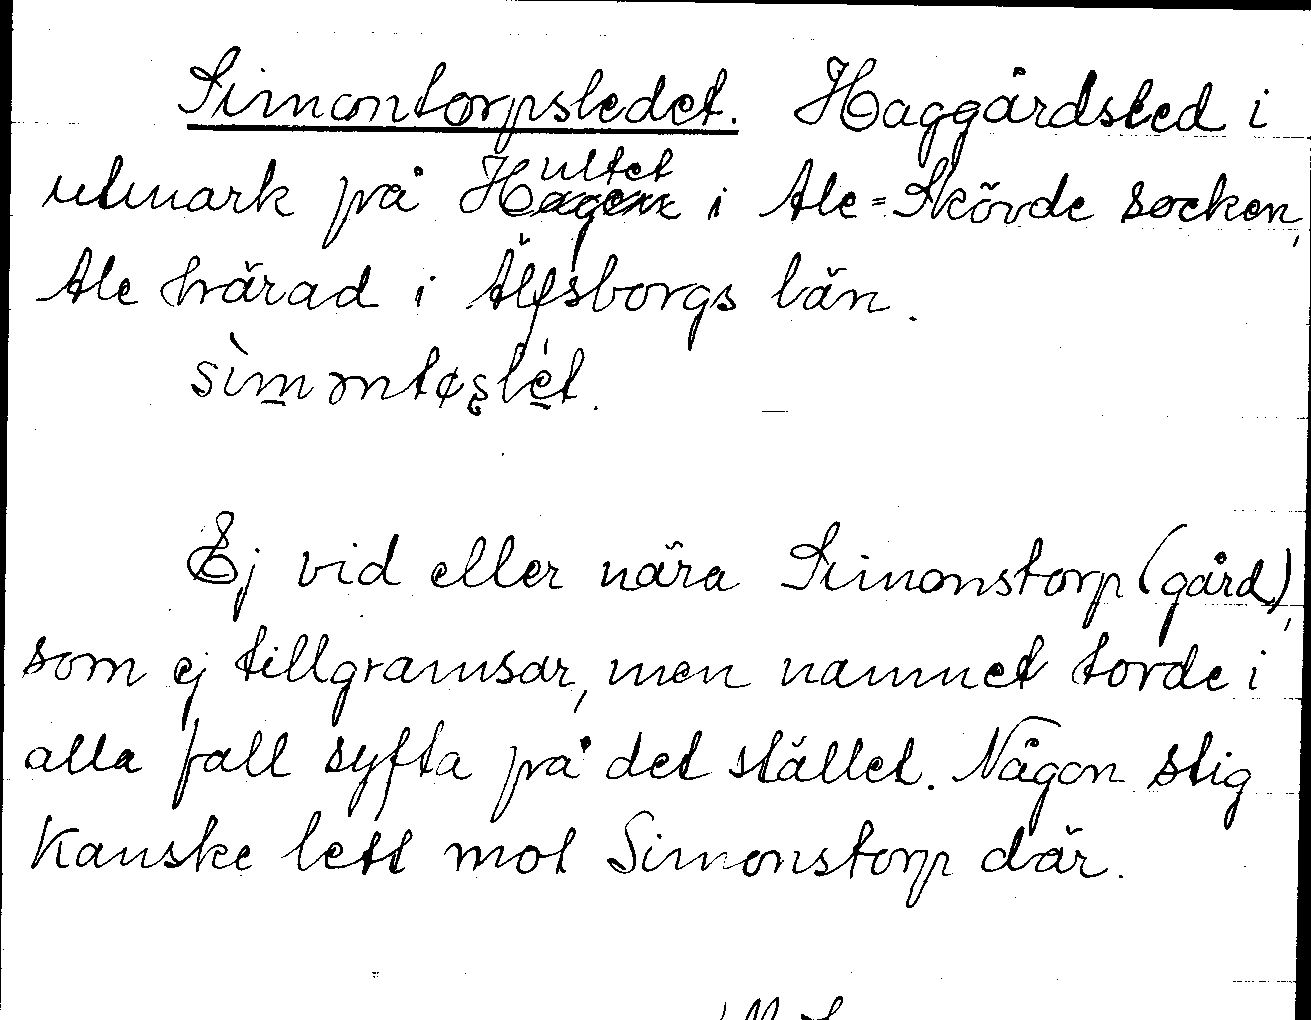 Simontorpsledet. Haggårdsled i
utmark på Hultet i Ale=Skövde socken,
Ale härad i Älfsborgs län.
sìmontøslét.
Ej vid eller nära Simonstorp (gård),
som ej tillgränsar, men namnet torde i
alla fall syfta på det stället. Någon stig
kanske lett mot Simonstorp där.